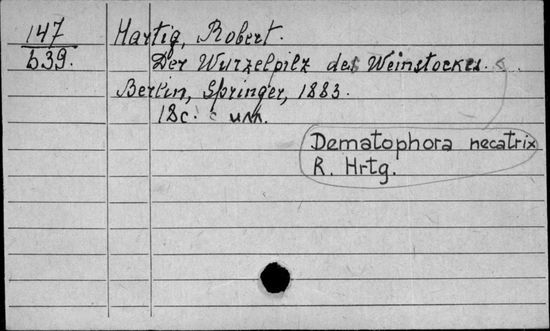 147 Hartig, Robert.
639. Der Wurzelpilz des Weinstockes.
Berlin, Springer, 1883.
18c. с илл.
Dematophora necatrix
R. Hrtg.